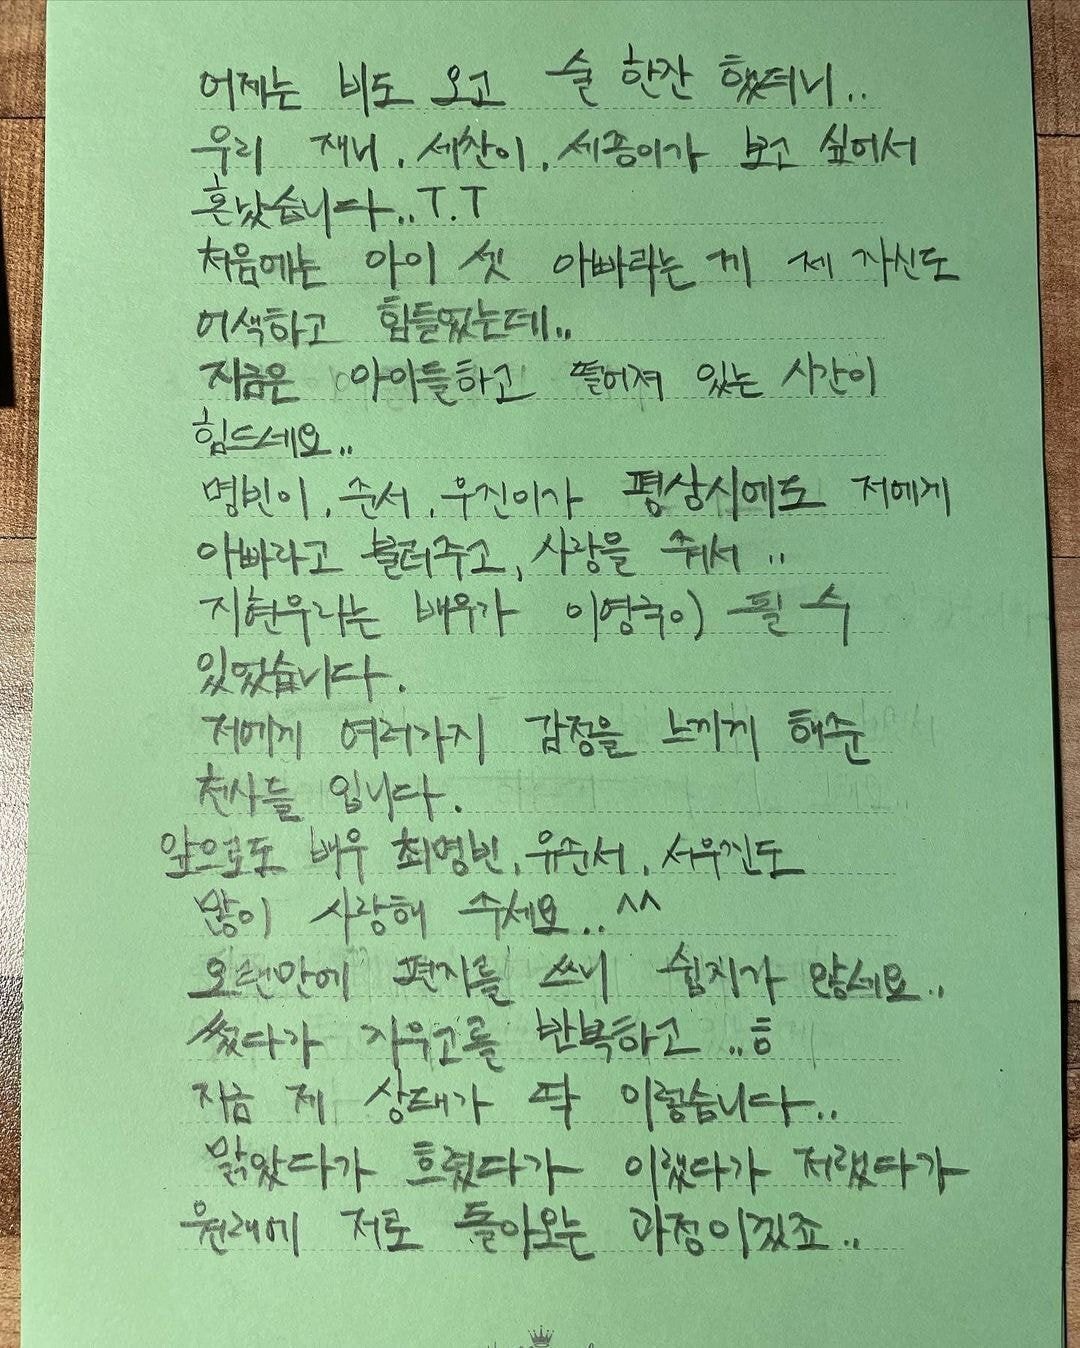 어제는 비도 오고 술 한잔 했더니..
우리 재니, 세찬이, 세종이가 보고 싶어서
혼났습니다..T.T
처음에는 아이 셋 아빠라는 게 제 자신도
어색하고 힘들었는데..
지금은 아이들하고 떨어져 있는 시간이
힘드세요..
명빈이, 준서, 우진이가 평상시에도 저에게
아빠라고 불러주고, 사랑을 줘서 ..
지현우라는 배우가 이영국이 될 수
있었습니다.
저에게 여러가지 감정을 느끼게 해준
천사들 입니다.
앞으로도 배우 최명빈, 유준서, 서우진도
많이 사랑해 주세요.. ^^
오랜만에 편지를 쓰니 쉽지가 않네요..
썼다가 지우고를 반복하고 ..흠
지금 제 상태가 딱 이렇습니다..
맑았다가 흐렸다가 이랬다가 저랬다가
원래에 저로 돌아오는 과정이겠죠..